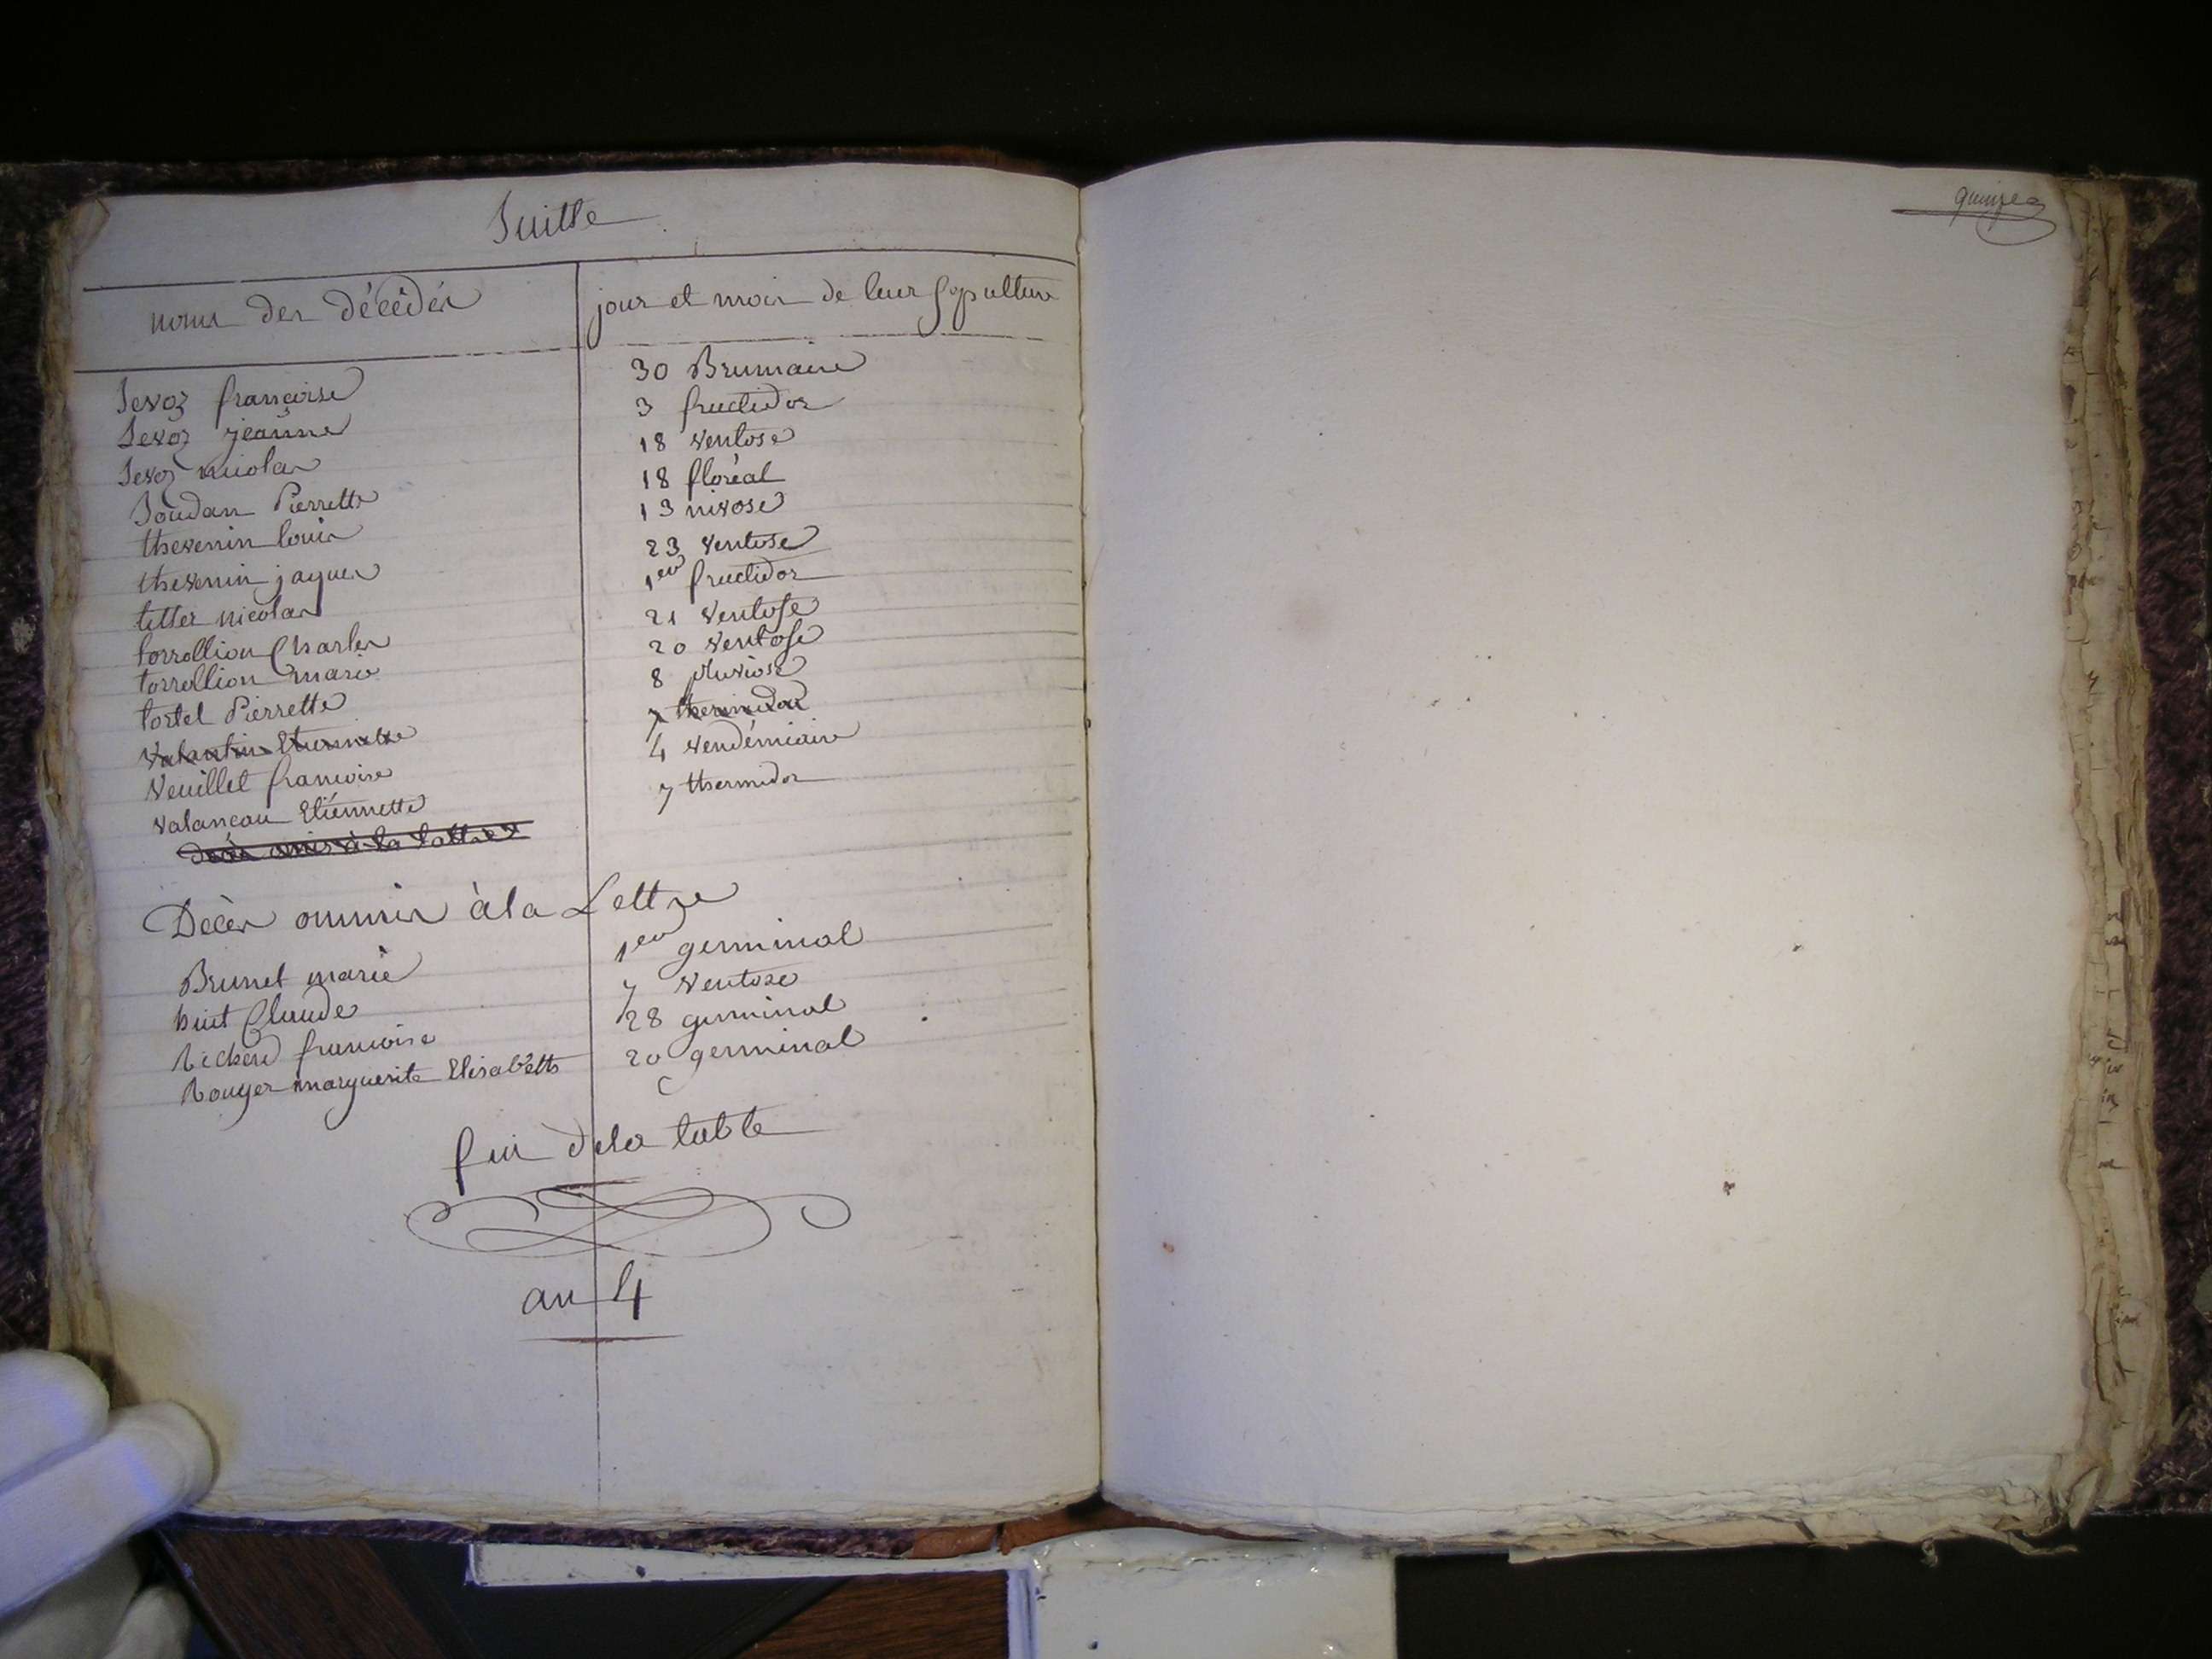 Suitte
noms des décédés jour et mois de leur sépulture
Sevoz françoise 30 Brumaire
Sevoz jeanne 3 fructidor
Sevoz nicolas 18 ventose
Soudan Pierrette 18 floréal
thevenin louis 13 nivose
thevenin jaques 23 ventose
titter nicolas 1er fructidor
torrollion Charles 21 ventose
torrollion marie 20 ventose
tortel Pierrette 8 pluviose
Valantin Etiennette 7 thermidor
Veuillet francoise 4 vendémiaire
valancau Etiénnette 7 thermidor
Décès ommis à la Lettre
Brunet marie 1er germinal
huit Claude 7 ventose
Richard francoise 28 germinal
Rouyer marguerite Elisabétts 20 germinal
fin de la table
an 4
quinze